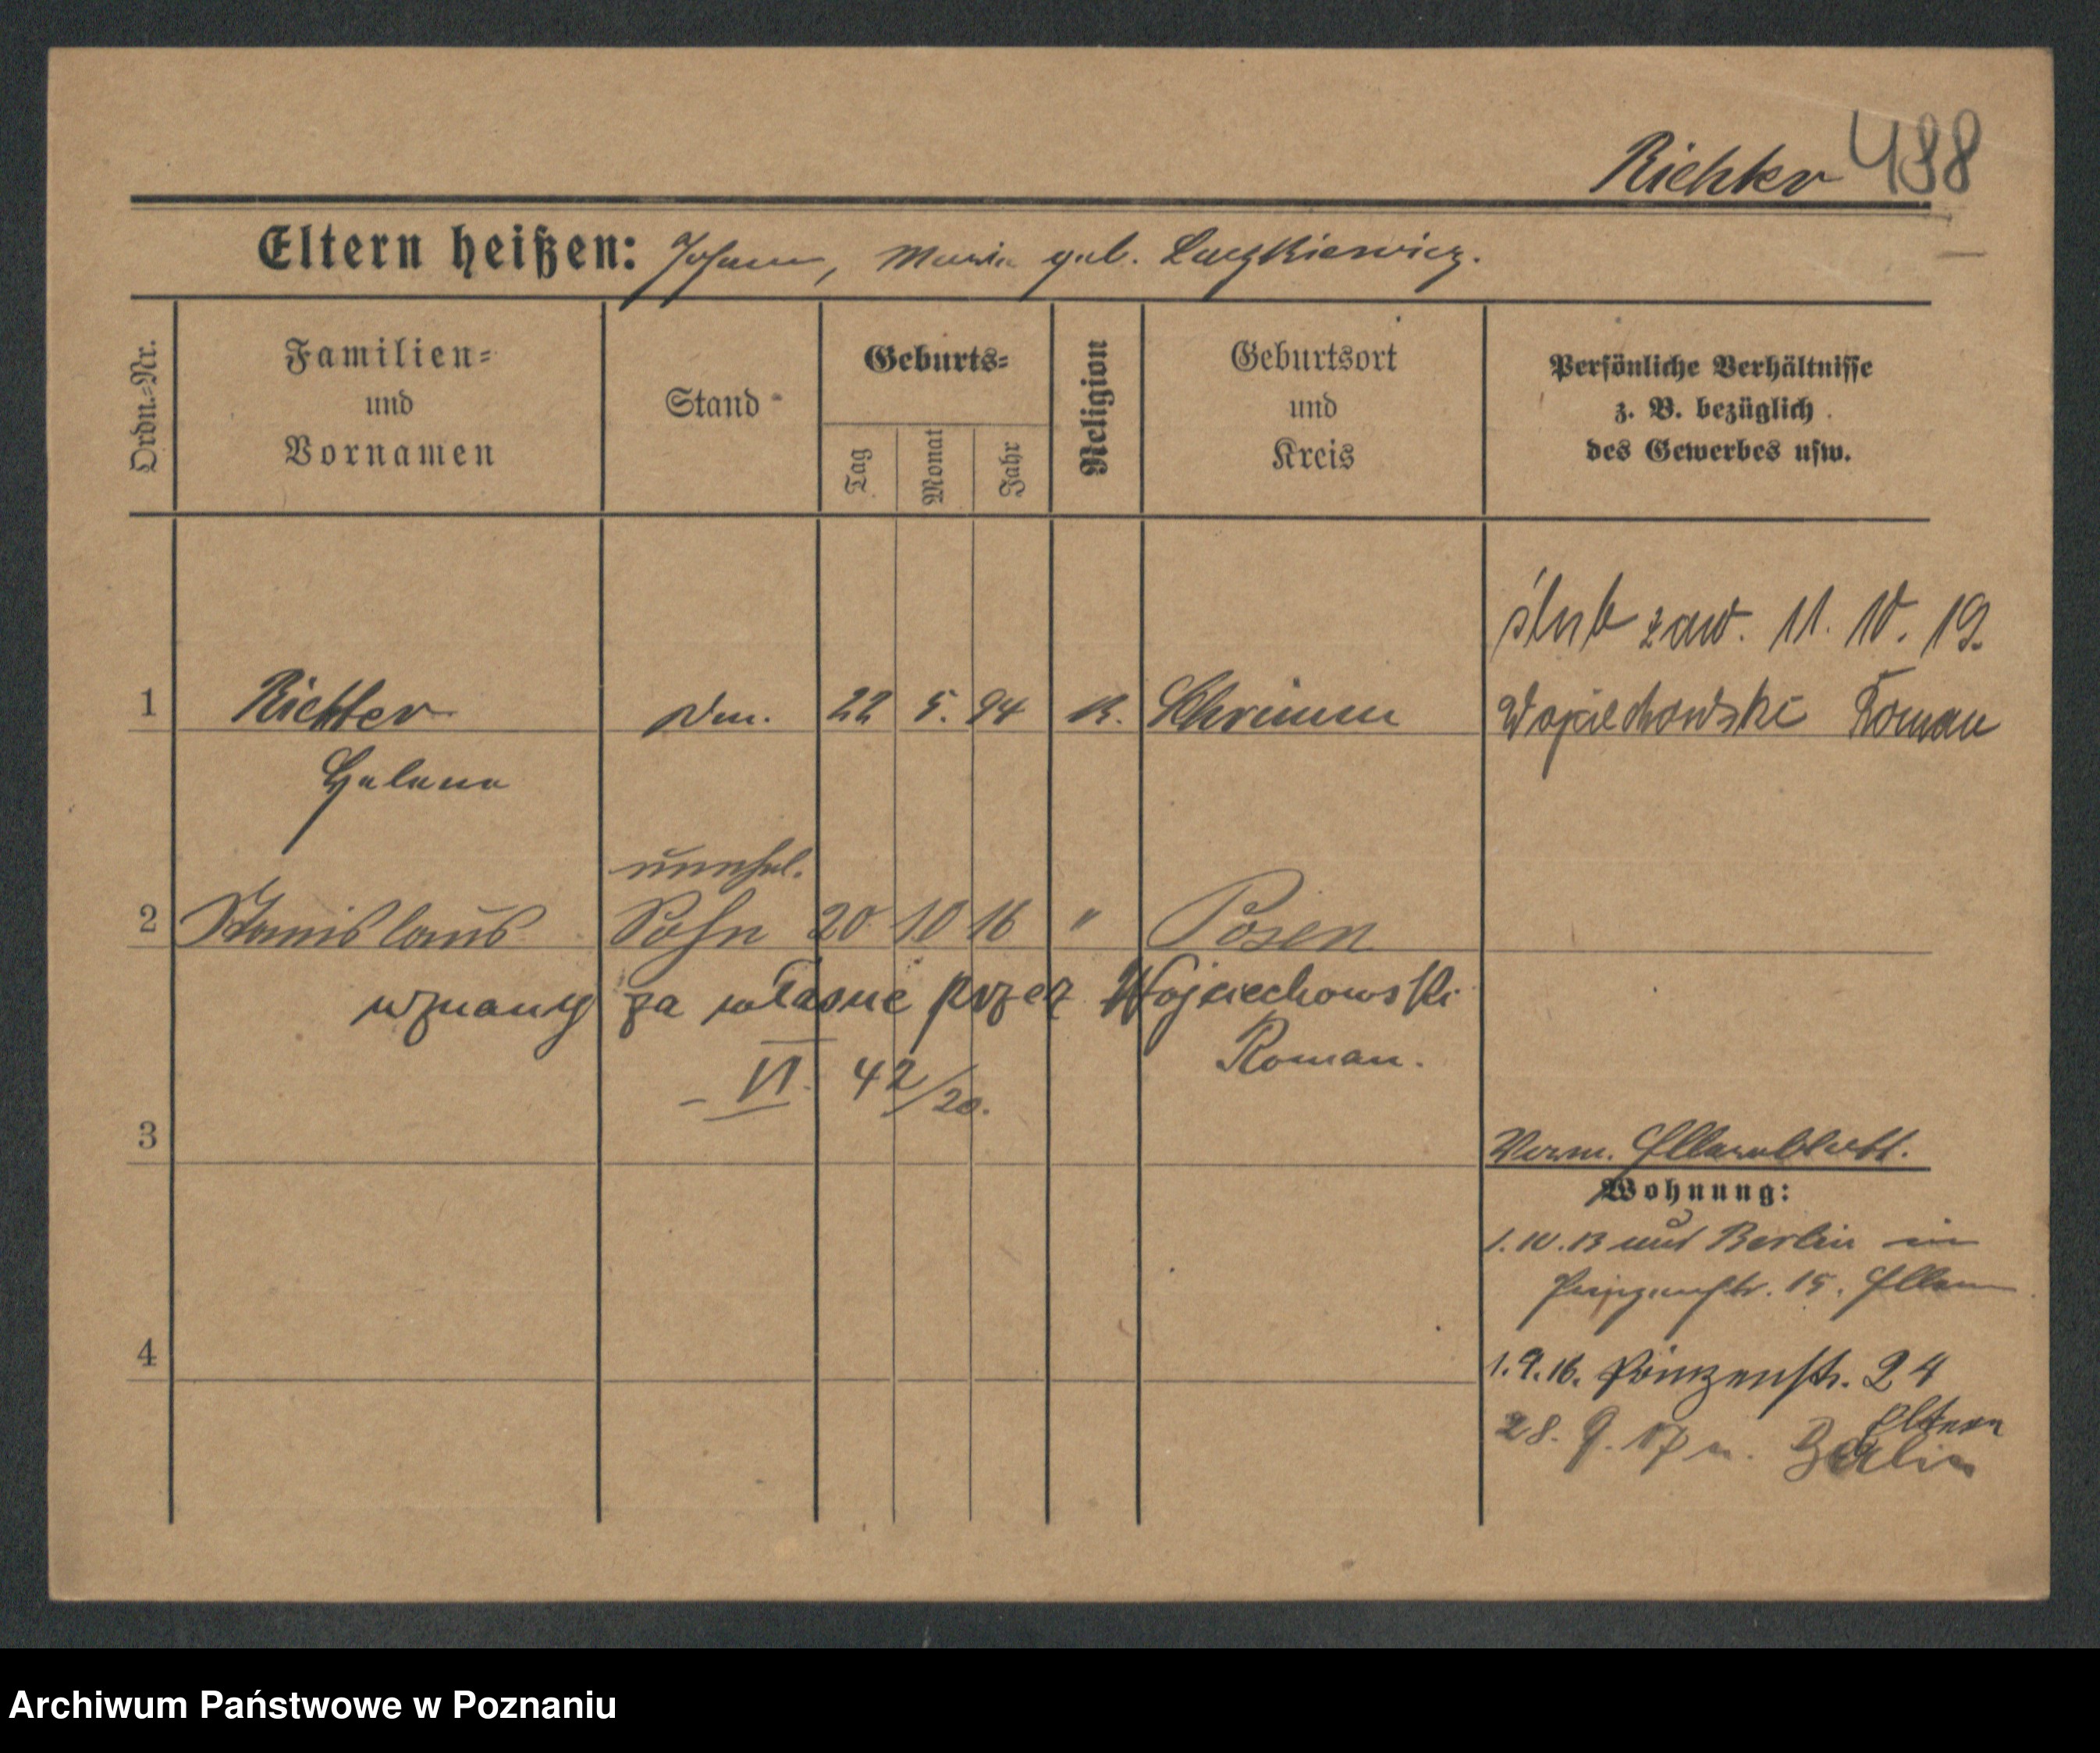 Richter 488
Eltern heißen: Johann, Maria geb. Luczkiewicz.
Ordn.=Nr.
Familien=
und
Vornamen
Stand
Geburts=
Tag
Monat
Jahr
Religion
Geburtsort
und
Kreis
Persönliche Verhältnisse
z. B. bezüglich
des Gewerbes usw.
ślub zaw. 11. 10. 19.
1 Richter 22 5. 94 K. Schrimm Wojciechowski Roman
Helena
unehel.
2 Stanislaus Sohn 20 10 16 " Posen
uznany za własne przez Wojciechowski
Roman.
- VI. 42/20.
3
Wohnung:
1.10.13 aus Berlin in
Prinzenstr. 15. Eltern
4
1.9.16. Prinzenstr. 24
Eltern
28. 9. 17 n. Berlin
Archiwum Państwowe w Poznaniu